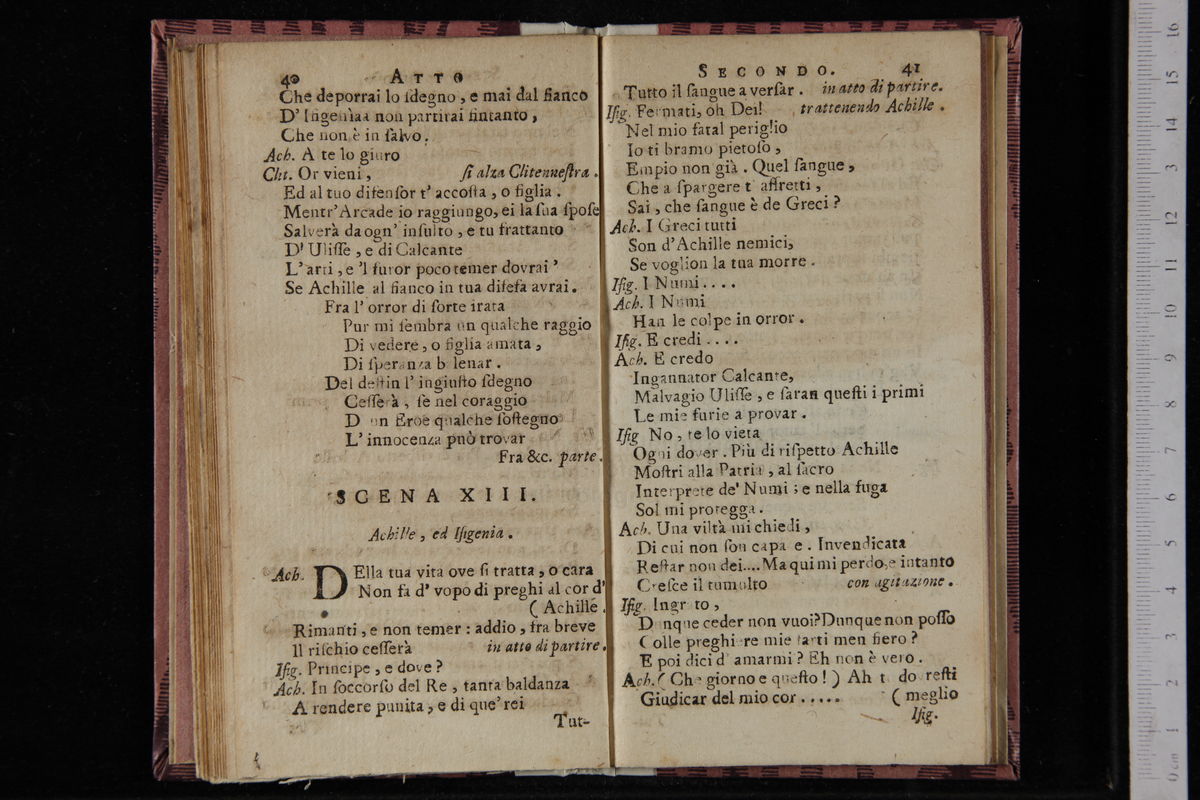 40 ATTO
Che deporrai lo ſdegno , e mai dal fianco
D' Ifigenìaa non partirai fintanto ,
Che non è in ſalvo .
Ach. A te lo giuro
Clit. Or vieni , ſi alza Clitenneſtra .
Ed al tuo difenſor t' accoſta , o figlia .
Mentr' Arcade io raggiungo, ei la ſua ſpoſe
Salverà da ogn' inſulto , e tu frattanto
D' Uliſſe , e di Calcante
L' arti , e 'l furor poco temer dovrai '
Se Achille al fianco in tua difeſa avrai .
Fra l' orror di ſorte irata
Pur mi ſembra un qualche raggio
Di vedere , o figlia amata ,
Di ſperanza b lenar .
Del deſtin l' ingiuſto ſdegno
Ceſſerà , ſe nel coraggio
D un Eroe qualche ſoſtegno
L' innocenza può trovar
Fra &c. parte .
SCENA XIII.
Achille , ed Ifigenia .
Ach. DElla tua vita ove ſi tratta , o cara
Non fa d' vopo di preghi al cor d'
( Achille .
Rimanti , e non temer : addio , fra breve
Il riſchio ceſſerà in atto di partire .
Ifig. Principe , e dove ?
Ach. In ſoccorſo del Re , tanta baldanza
A rendere punita , e di que' rei
Tut-
SECONDO. 41
Tutto il ſangue a verſar . in atto di partire .
Ifig. Fermati, oh Dei! trattenendo Achille .
Nel mio fatal periglio
Io ti bramo pietoſo ,
Empio non già . Quel ſangue ,
Che a ſpargere t' affretti ,
Sai , che ſangue è de Greci ?
Ach. I Greci tutti
Son d'Achille nemici,
Se voglion la tua morre .
Ifig. I Numi . . . .
Ach. I Numi
Han le colpe in orror .
Ifig. E credi . . . .
Ach. E credo
Ingannator Calcante,
Malvagio Uliſſe , e ſaran queſti i primi
Le mie furie a provar .
Ifig No , te lo vieta
Ogni dover . Più di riſpetto Achille
Moſtri alla Patria , al ſacro
Interprete de' Numi ; e nella fuga
Sol mi protegga .
Ach. Una viltà mi chiedi ,
Di cui non ſon capa e . Invendicata
Reſtar non dei.... Ma qui mi perdo, e intanto
Creſce il tumulto con agitazione .
Ifig. Ingr to ,
D nque ceder non vuoi? Dunque non poſſo
Colle preghi re mie farti men fiero ?
E poi dici d' amarmi ? Eh non è vero .
Ach. ( Che giorno e queſto ! ) Ah t do reſti
Giudicar del mio cor . . . . . ( meglio
Ifig.
0 cm 1 2 3 4 5 6 7 8 9 10 11 12 13 14 15 16